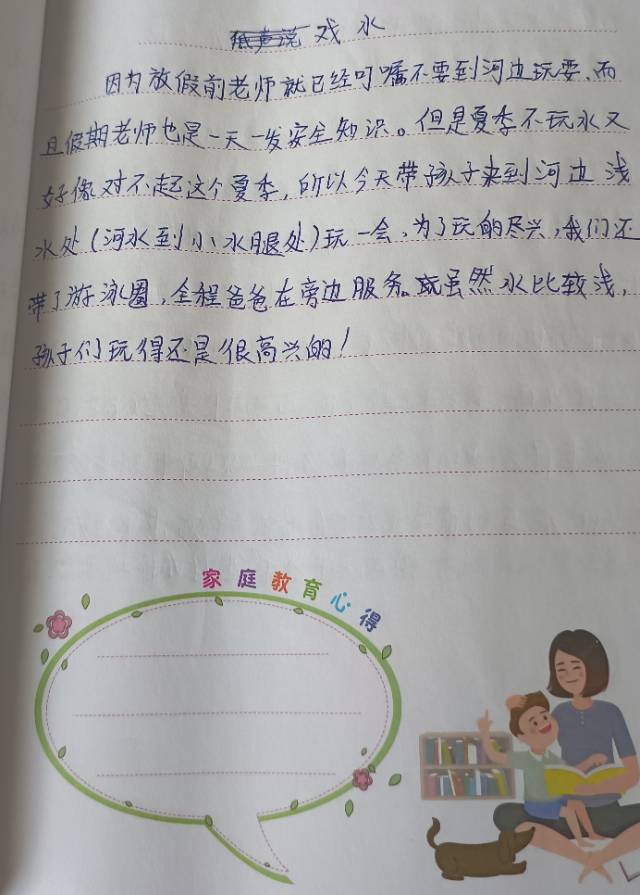 戏水
因为放假前老师就已经叮嘱不要到河边玩耍,而
且假期老师也是一天一发安全知识。但是夏季不玩水又
好像对不起这个夏季,所以今天带孩子来到河边浅
水处(河水到小水腿处)玩一会,为了玩的尽兴,我们还
带了游泳圈,全程爸爸在旁边服务。虽然水比较浅,
孩子们玩得还是很高兴的!
家庭教育心得